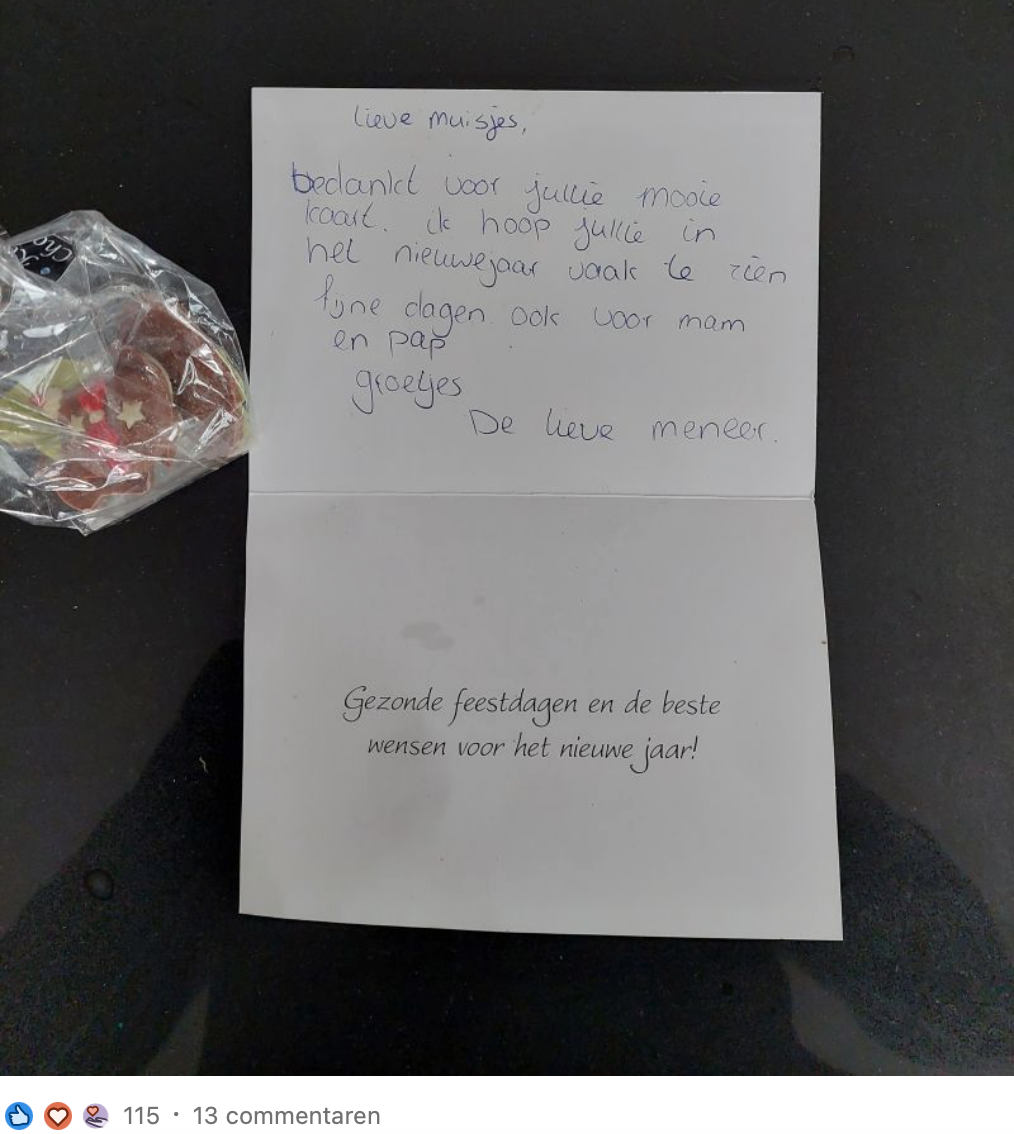 lieve muisjes,
bedankt voor jullie mooie
kaart. ik hoop jullie in
het nieuwejaar vaak te zien
fijne dagen. ook voor mam
en pap
groetjes
De lieve meneer.
Gezonde feestdagen en de beste
wensen voor het nieuwe jaar!
115 · 13 commentaren